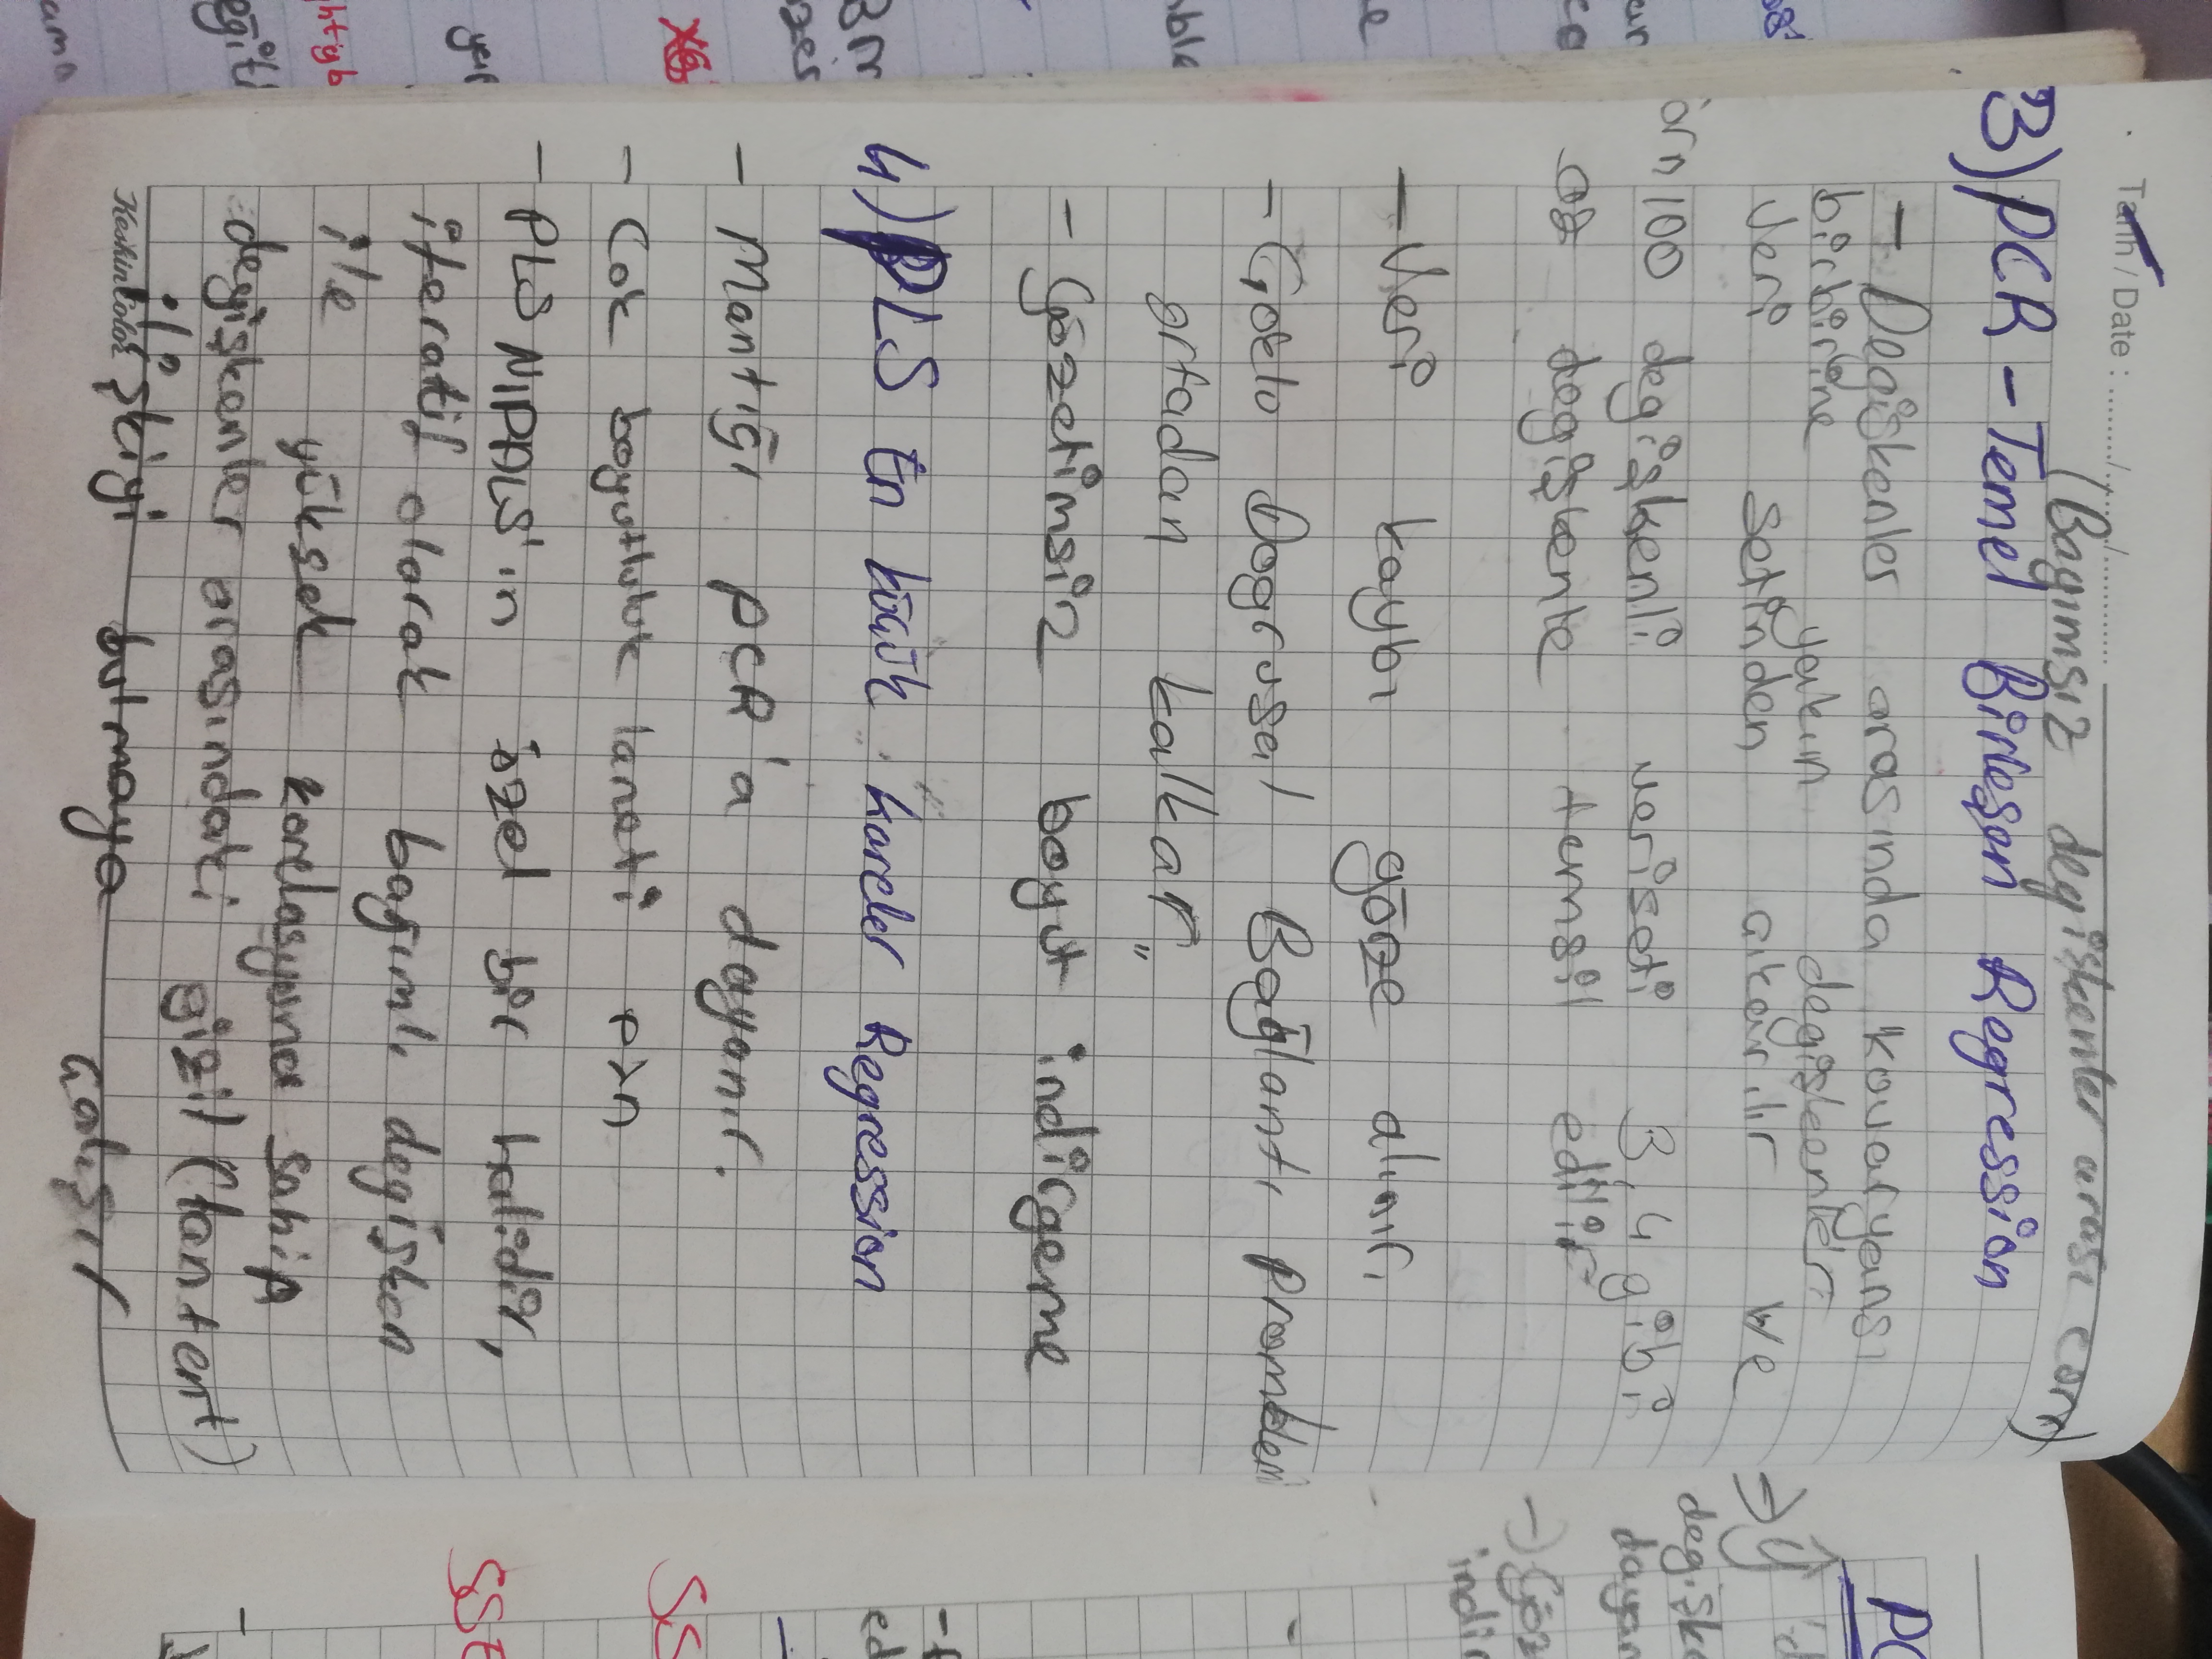 Tarih / Date : ......../......../............
(Bagımsız degişkenler arası corr)
3) PCR - Temel Birleşen Regression
- Degişkenler arasında kovaryansı
birbirine yakın degişkenler
veri setinden çıkarılır ve
örn 100 degişkenli veriseti 3,4 gibi
az degişkenle temsil edilir
- Veri kaybı göze alınır.
- Çoklu Dogrusal Bağlantı promblem
ortadan kalkar,,
- Gözetimsiz boyut indirgeme
4) PLS En küçük kareler Regression
- Mantığı PCR'a dayanır.
- Çok boyutluluk laneti p>n
- PLS NIPALS'ın özel bir halidir,
iteratif olarak bağımlı degişken
ile yüksek korelasyona sahip
degişkenler arasındaki gizil (lantent)
ilişkiyi bulmaya çalışır
KeskinColor
PC
=> y
-) Göz
indir
SS
SSE
ed